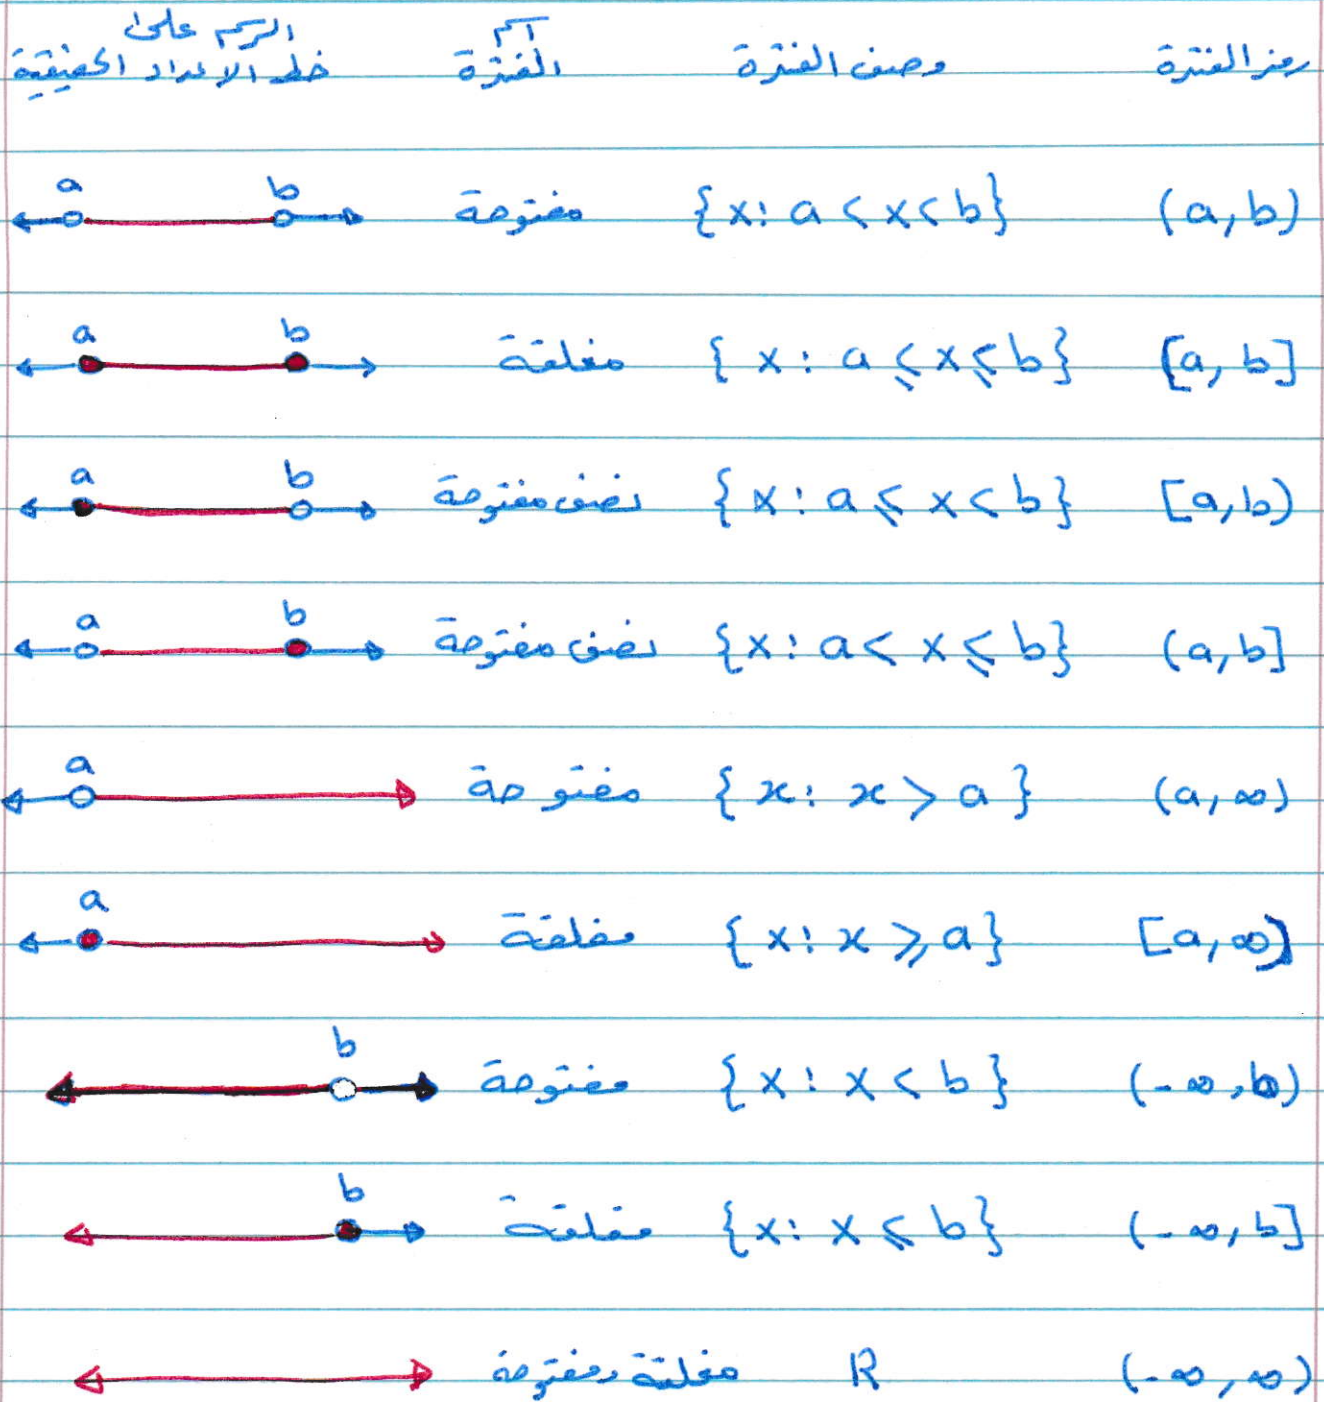 رمز الفترة وصف الفترة اسم الفترة الرسم على خط الاعداد الحقيقية
(a, b) {x: a < x < b} مفتوحة a b
[a, b] {x: a ≤ x ≤ b} مغلقة a b
[a, b) {x: a ≤ x < b} نصف مفتوحة a b
(a, b] {x: a < x ≤ b} نصف مفتوحة a b
(a, ∞) {x: x > a} مفتوحة a
[a, ∞) {x: x ≥ a} مغلقة a
(-∞, b) {x: x < b} مفتوحة b
(-∞, b] {x: x ≤ b} مغلقة b
(-∞, ∞) R مغلقة ومفتوحة